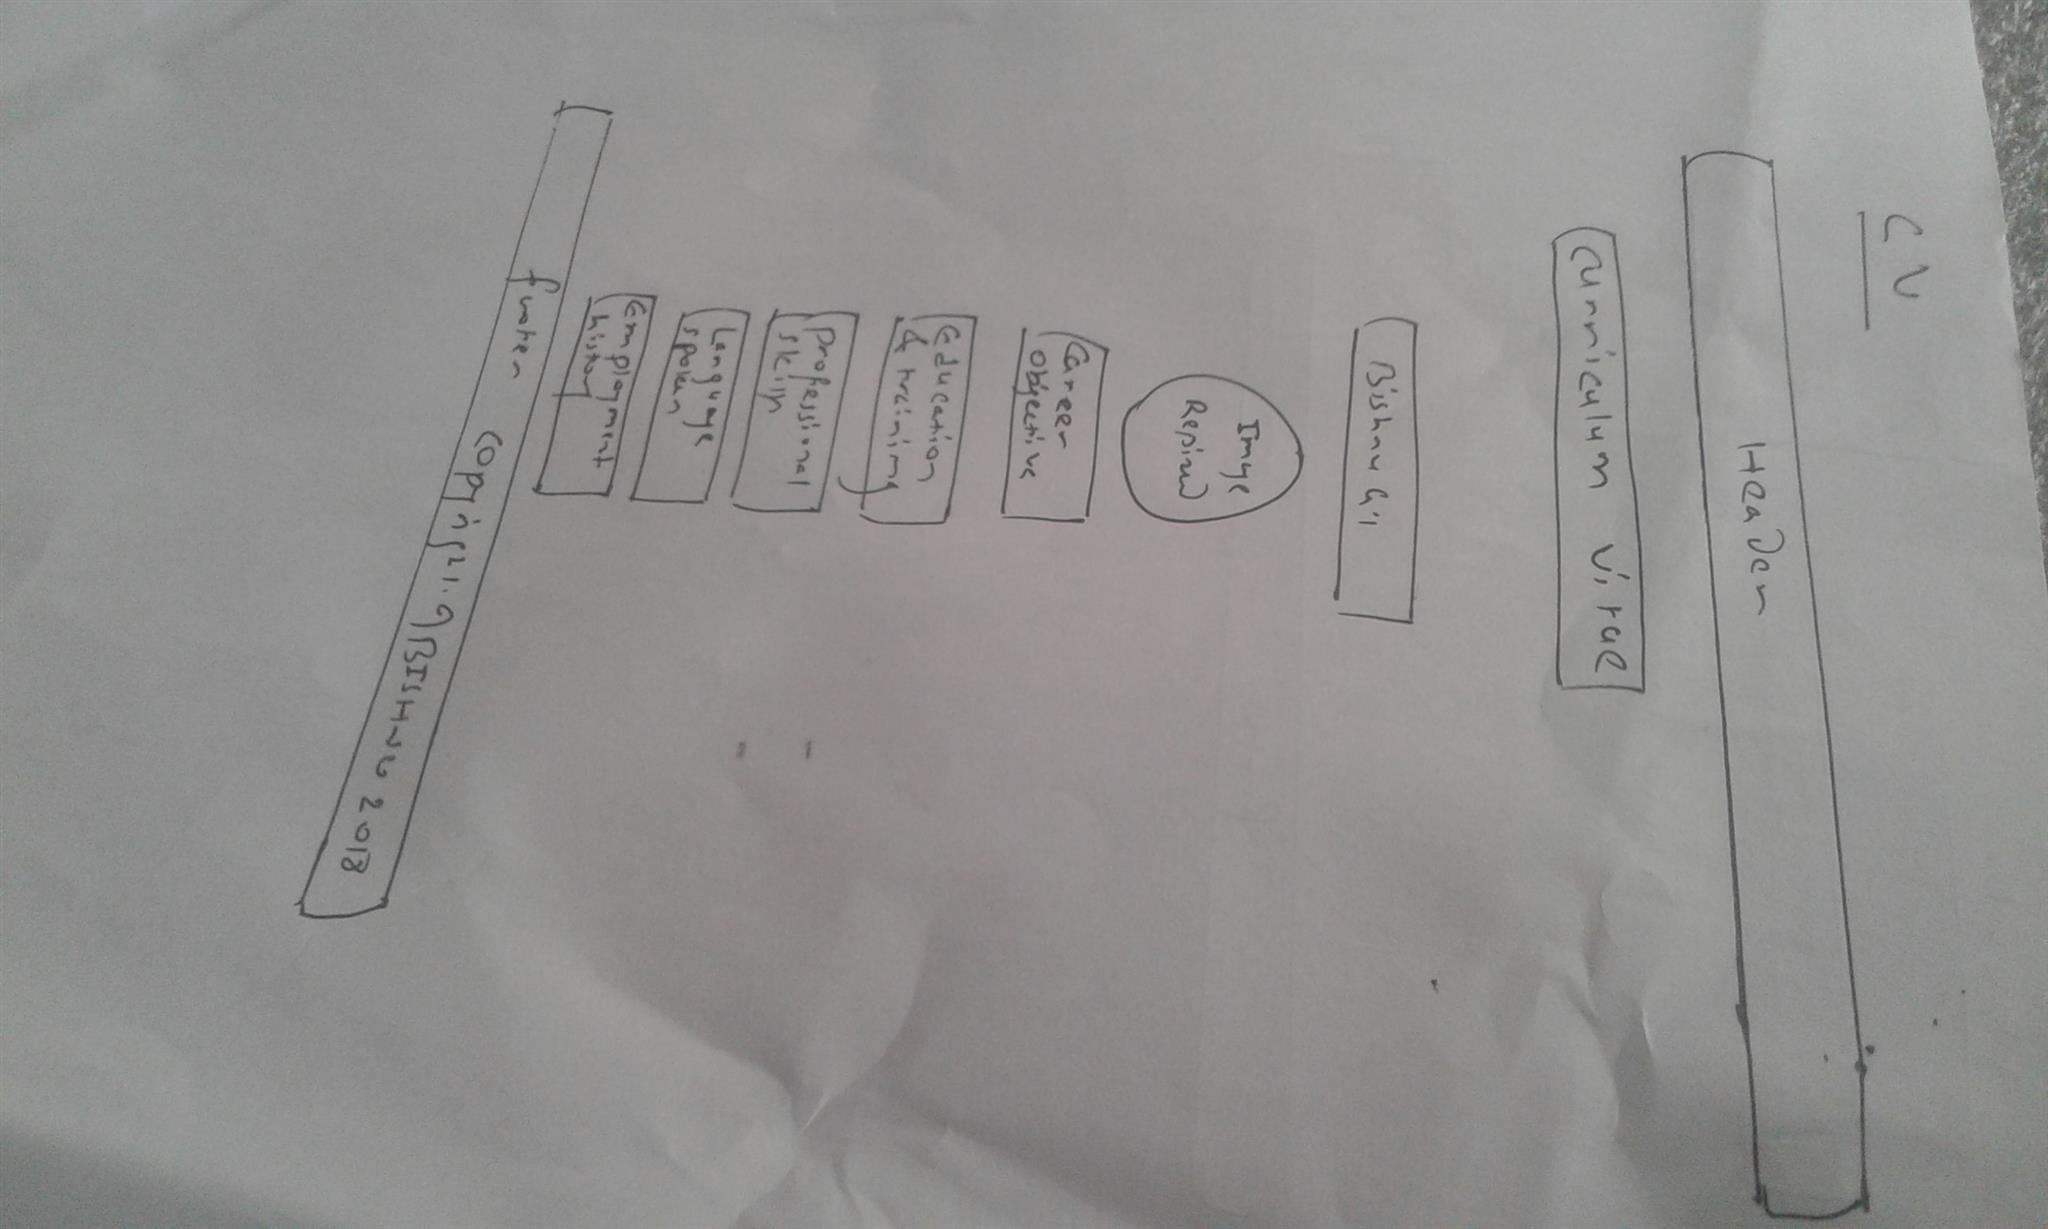 CV
Header
Curriculum Vitae
Bishnu
Image
Career
objective
Education
& training
professional
skills
Language
spoken
Employment
history
footer copyright. BISHNU 2018